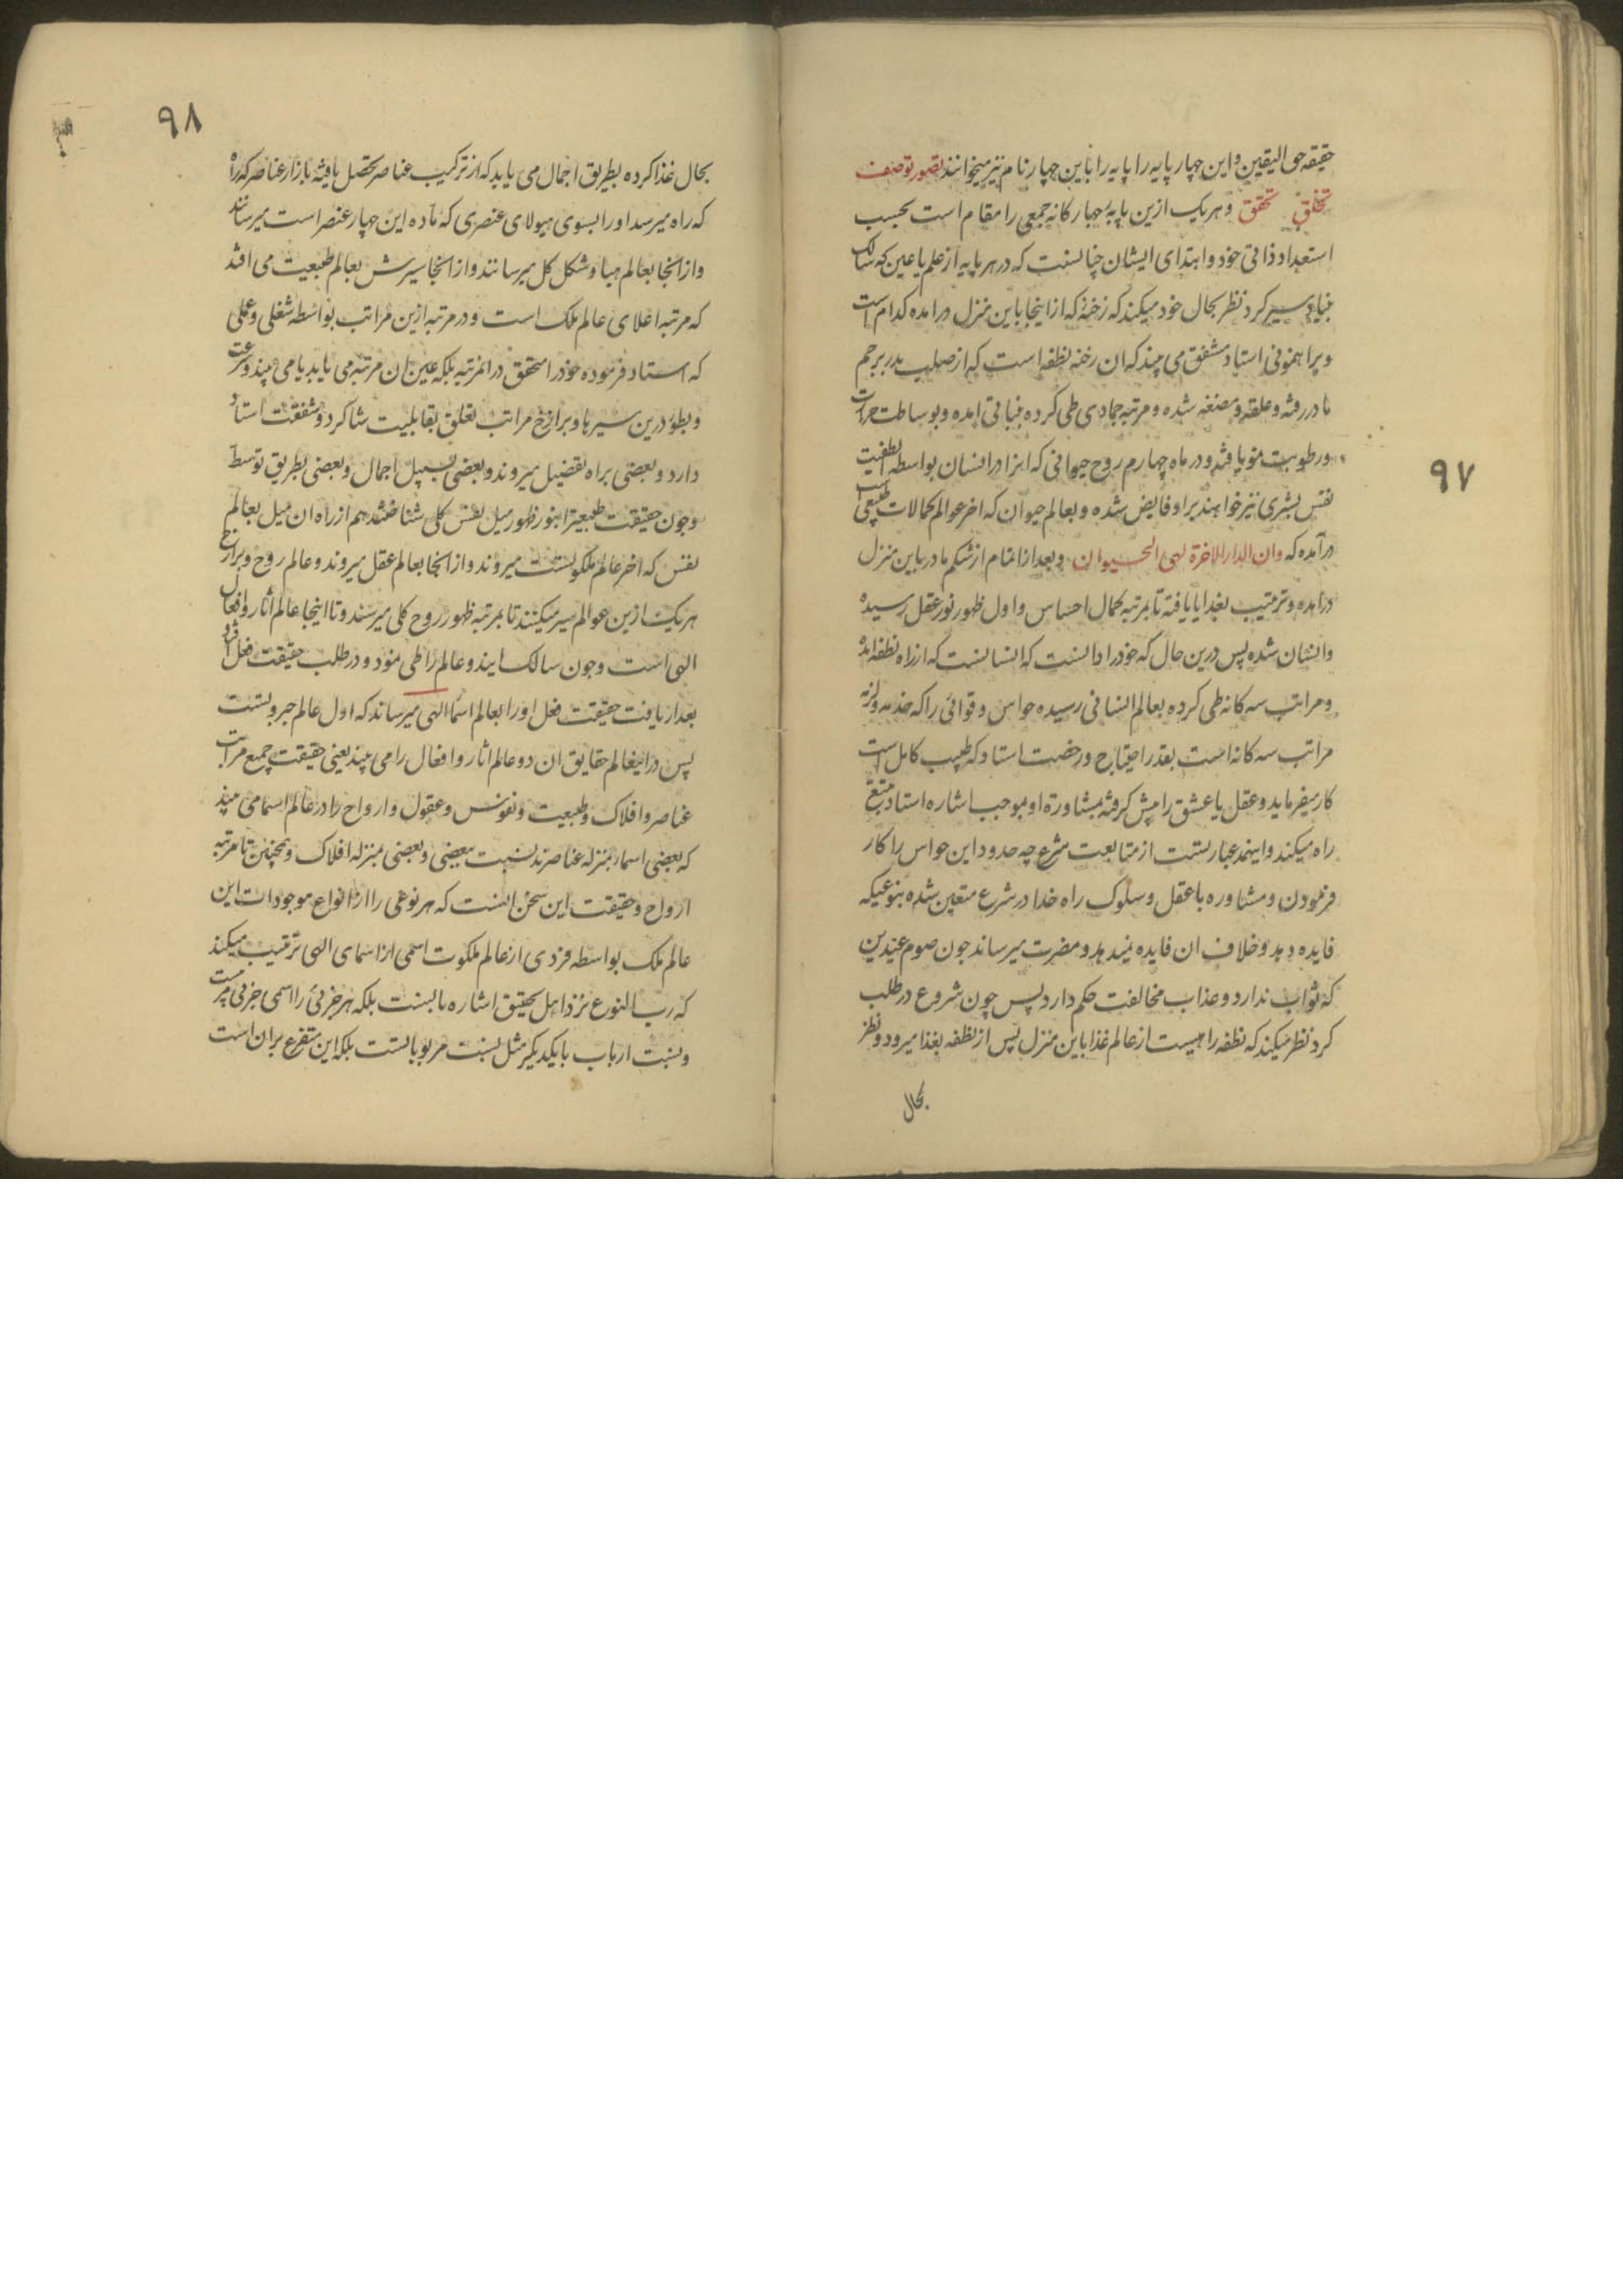 ۹۷
حقیقه حق الیقین و این چهار پایه را پایه را باین چهار نام نیز میخوانند تصور توصف
تخلق تحقق و هر یک ازین پایهٔ چهارکانه جمعی را مقام است بحسب
استعداد ذاتی خود و ابتدای ایشان چنانست که در هر پایه از علم یا عین که سالک
بنیاد سیر کرد نظر بحال خود میکند که رخنهٔ که از اینجا باین منزل درآمده کدام است
و براهنمونی استاد مشفق می بیند که ان رخنه نطفه است که از صلب پدر برحم
مادر رفته و علقه و مضغه شده و مرتبه جمادی طی کرده نباتی امده و بوساطت حرارت
و رطوبت نمو یافته و در ماه چهارم روح حیوانی که انرا در انسان بواسطه لطفیت
نفس بشری نیز خوانند برو فایض شده و بعالم حیوان که اخر عوالم کمالات طبیعی است
درآمده که وان الدار الاخرة لهی الحیوان و بعد از اتمام از شکم مادر باین منزل
درامده و ترتیب بغدا یافته تا بمرتبه کمال احساس و اول ظهور نور عقل رسیده
و انسان شده پس درین حال که خود را دانست که انسانست که از راه نطفه امده
و مراتب سه کانه طی کرده بعالم انسانی رسیده حواس و قوائی را که خدمه و لزمه
مراتب سه کانه است بقدر احتیاج و رخصت استاد که طبیب کامل است
کار میفرماید و عقل یا عشق را پیش کرفته بمشاورة او بموجب اشاره استاد تتبع
راه میکند و اینهمه عبارتست از متابعت شرع چه حدود این حواس را کار
فرمودن و مشاوره با عقل و سلوک راه خدا در شرع متعین شده بنوعیکه
فایده دهد و خلاف ان فایده نمیدهد و مضرت میرساند چون صوم عیدین
که ثواب ندارد و عذاب مخالفت حکم دارد پس چون شروع در طلب
کرد نظر میکند که نطفه راهیست از عالم غذا باین منزل پس از نطفه بغذا میرود و نظر
بحال
۹۸
بحال غذا کرده بطریق اجمال می یابد که از ترکیب عناصر تحصل یافته باز از عناصر که راه
که راه میرسد او را بسوی هیولای عنصری که مادّه این چهار عنصر است میرسانند
و از انجا بعالم هبا و شکل کل میرسانند و از انجا سیرش بعالم طبیعت می افتد
که مرتبه اعلای عالم ملک است و در مرتبه ازین مراتب بواسطه شغلی و عملی
که استاد فرموده خود را متحقق در انمرتبه بلکه عین ان مرتبه می یابد یا می بیند و سرعت
و بطوء درین سیرها و برازخ مراتب تعلق بقابلیت شاکرد و شفقت استاد
دارد و بعضی براه تفصیل میروند و بعضی بسبیل اجمال و بعضی بطریق توسط
و چون حقیقت طبیعت را بنور ظهور میل نفس کلی شناختند هم از راه ان میل بعالم
نفس که اخر عالم ملکوتست میروند و از انجا بعالم عقل میروند و عالم روح و برازخ
هریک ازین عوالم سیر میکنند تا بمرتبه ظهور روح کلی میرسند و تا اینجا عالم اثار و افعال
الهی است و چون سالک ایندو عالم را طی نمود و در طلب حقیقت فعل افتد
بعد از یافت حقیقت فعل او را بعالم اسما الهی میرساند که اول عالم جبروتست
پس در اینعالم حقایق ان دو عالم اثار و افعال را می بیند یعنی حقیقت جمیع مراتب
عناصر و افلاک و طبیعت و نفوس و عقول و ارواح را در عالم اسما می بیند
که بعضی اسما بمنزله عناصرند نسبت ببعضی و بعضی بمنزله افلاک و همچنین تا مرتبه
ارواح و حقیقت این سخن انست که هر نوعی را از انواع موجودات این
عالم ملک بواسطه فردی از عالم ملکوت اسمی از اسمای الهی ترتیب میکند
که رب النوع نزد اهل تحقیق اشاره بانست بلکه هر جزئی را اسمی جزئی مرتبست
و نسبت ارباب بایکدیکر مثل نسبت مربوباتست بلکه این متفرع بران است